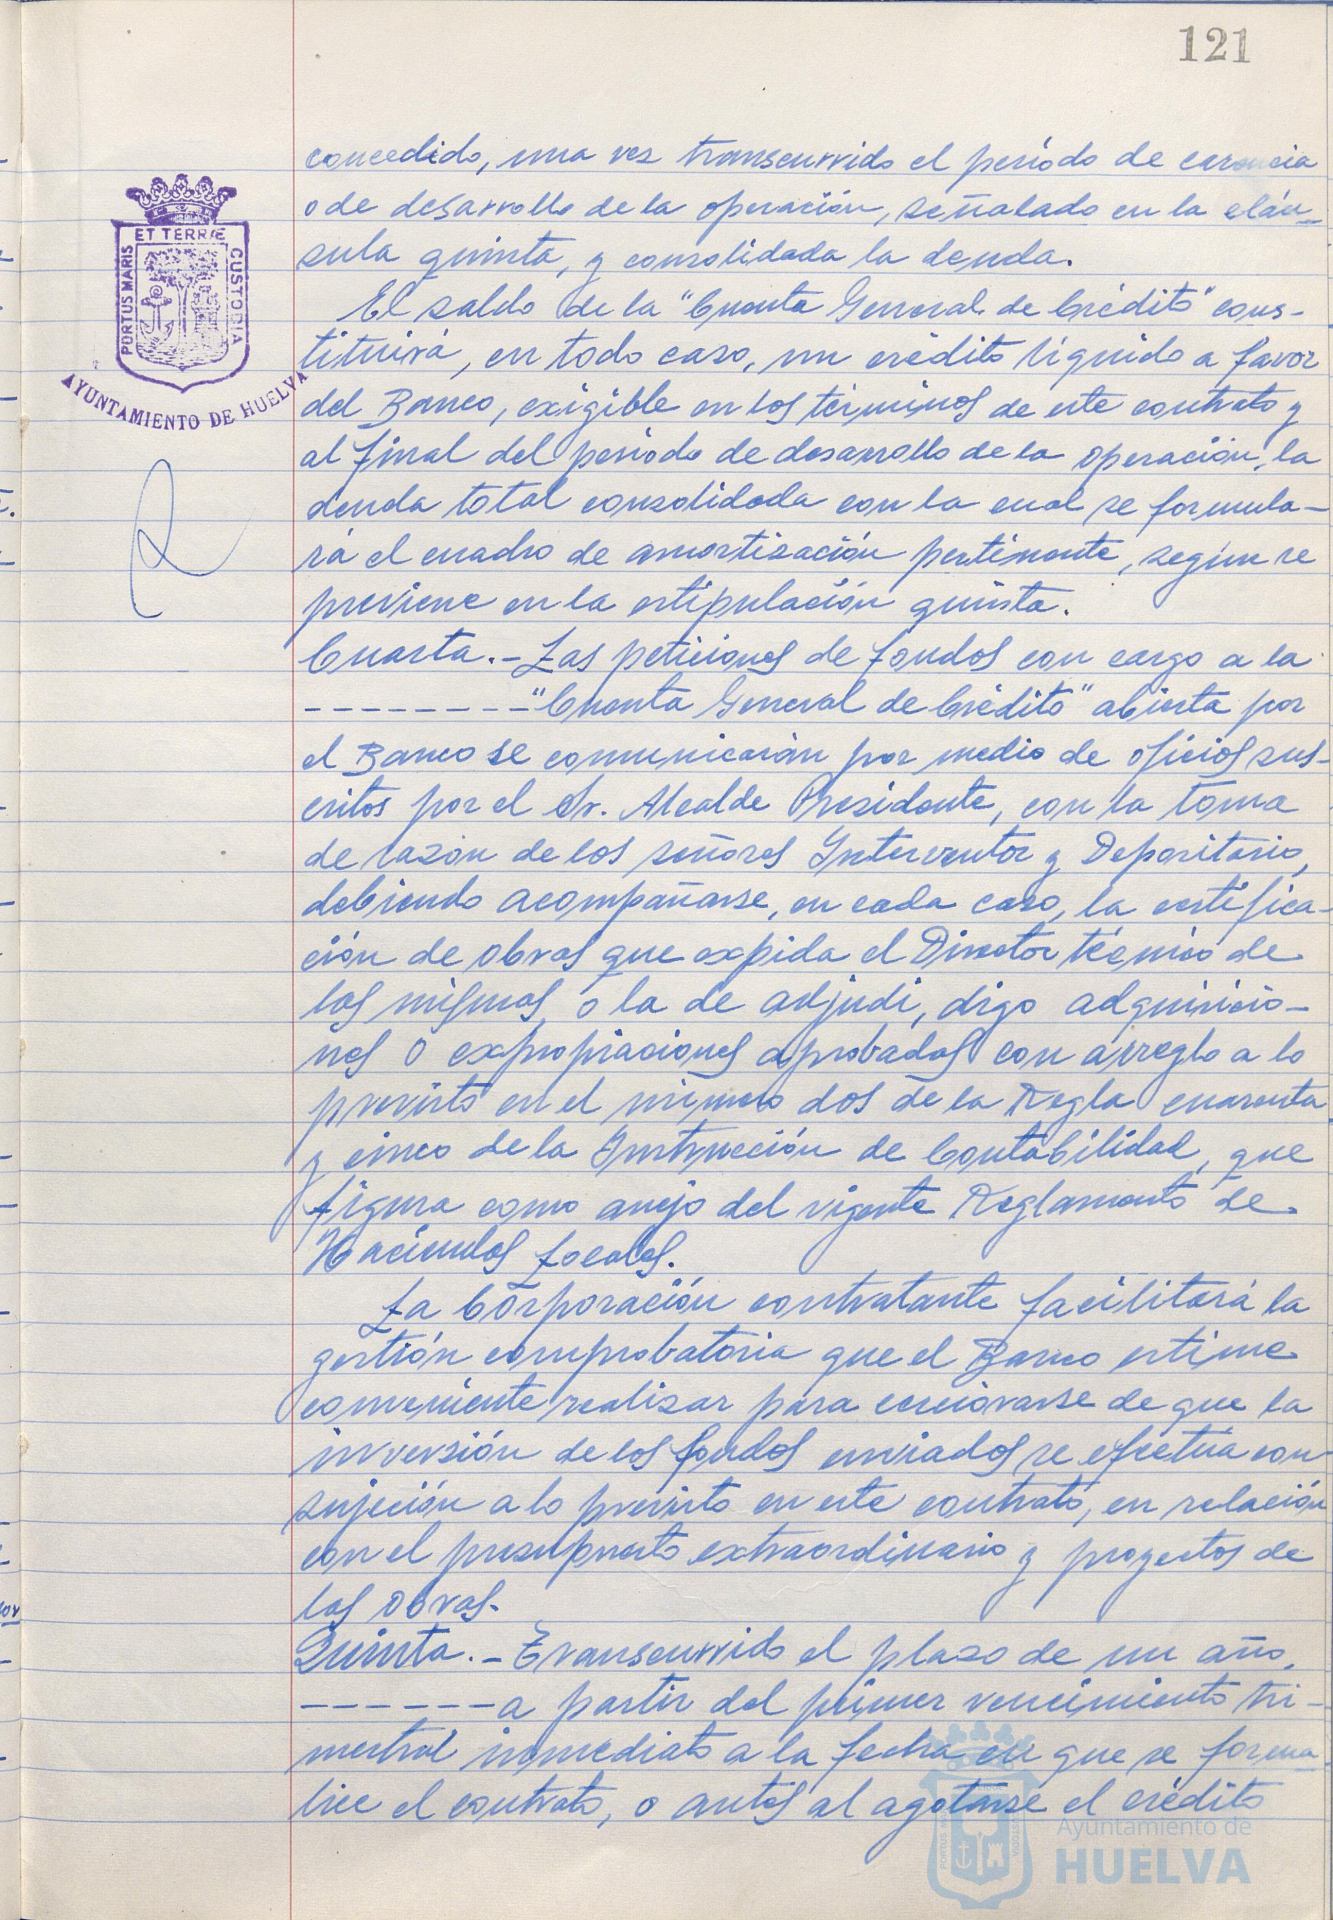 121
concedido, una vez transcurrido el período de carencia
o de desarrollo de la operación, señalado en la cláu-
sula quinta, y consolidada la deuda.
El saldo de la "Cuenta General de Crédito" cons-
tituirá, en todo caso, un crédito líquido a favor
del Banco, exigible en los términos de este contrato y
al final del período de desarrollo de la operación, la
deuda total consolidada con la cual se formula-
rá el cuadro de amortización pertinente, según se
previene en la estipulación quinta.
Cuarta.- Las peticiones de fondos con cargo a la
-------- "Cuenta General de Crédito" abierta por
el Banco se comunicarán por medio de oficios sus-
critos por el Sr. Alcalde Presidente, con la toma
de razón de los señores Interventor y Depositario,
debiendo acompañarse, en cada caso, la certifica-
ción de obras que expida el Director técnico de
las mismas, o la de adjudi, digo adquisicio-
nes o expropiaciones aprobadas con arreglo a lo
previsto en el número dos de la Regla cuarenta
y cinco de la Instrucción de Contabilidad, que
figura como anejo del vigente Reglamento de
Haciendas Locales.
La Corporación contratante facilitará la
gestión comprobatoria que el Banco estime
conveniente realizar para cerciorarse de que la
inversión de los fondos enviados se efectúa con
sujeción a lo previsto en este contrato, en relación
con el presupuesto extraordinario y proyectos de
las obras.
Quinta.- Transcurrido el plazo de un año,
------ a partir del primer vencimiento tri-
mestral inmediato a la fecha en que se forma-
lice el contrato, o antes al agotarse el crédito
PORTUS MARIS ET TERRÆ CUSTODIA
AYUNTAMIENTO DE HUELVA
Ayuntamiento de
HUELVA